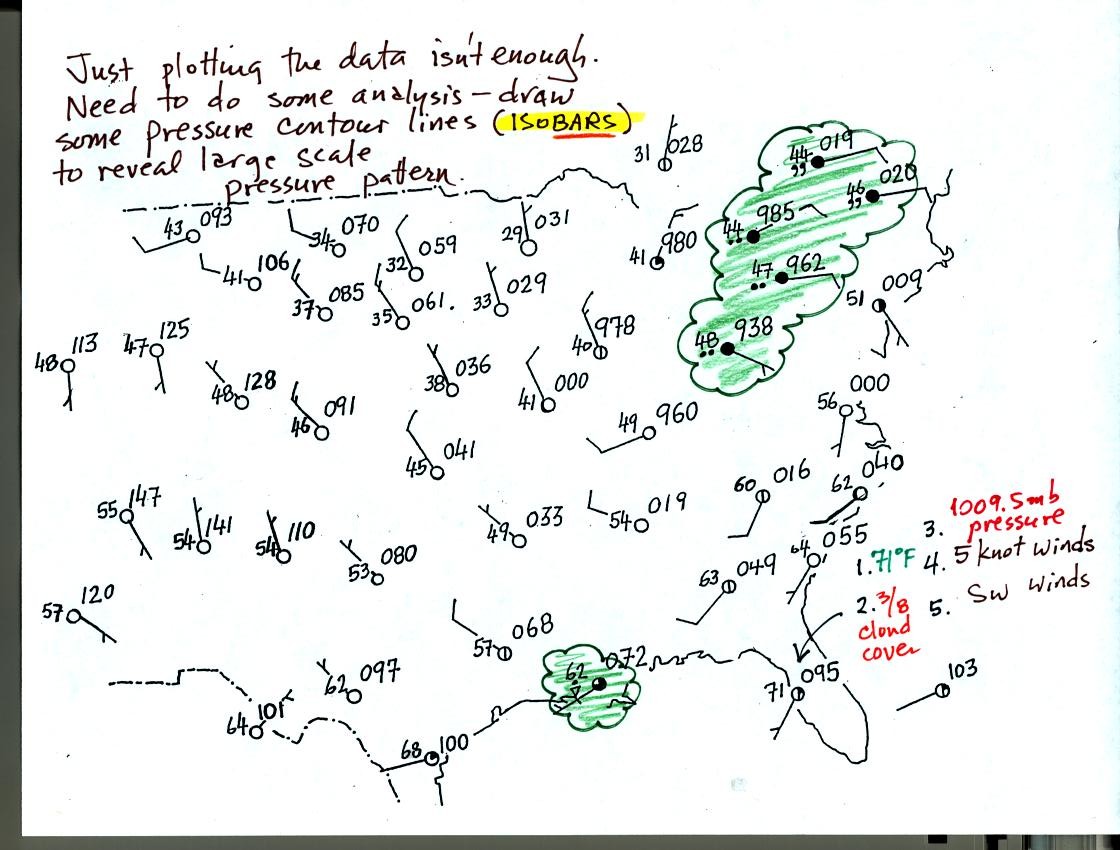 Just plotting the data isn't enough.
Need to do some analysis - draw
some pressure contour lines (ISOBARS)
to reveal large scale
pressure pattern.
31 028
44 019
,,
46 020
,,
43 093
34 070
32 059
29 031
41 980
44 985
41 106
37 085
35 061.
33 029
47 962
51 009
48 113
47 125
40 978
48 938
48 128
46 091
38 036
41 000
49 960
56 000
45 041
60 016
62 040
55 147
54 141
54 110
49 033
54 019
64 055
53 080
63 049
1. 71°F
2. 3/8
cloud
cover
3. 1009.5 mb
pressure
4. 5 knot winds
5. SW winds
57 120
57 068
62 072
62 097
71 095
103
64 101
68 100